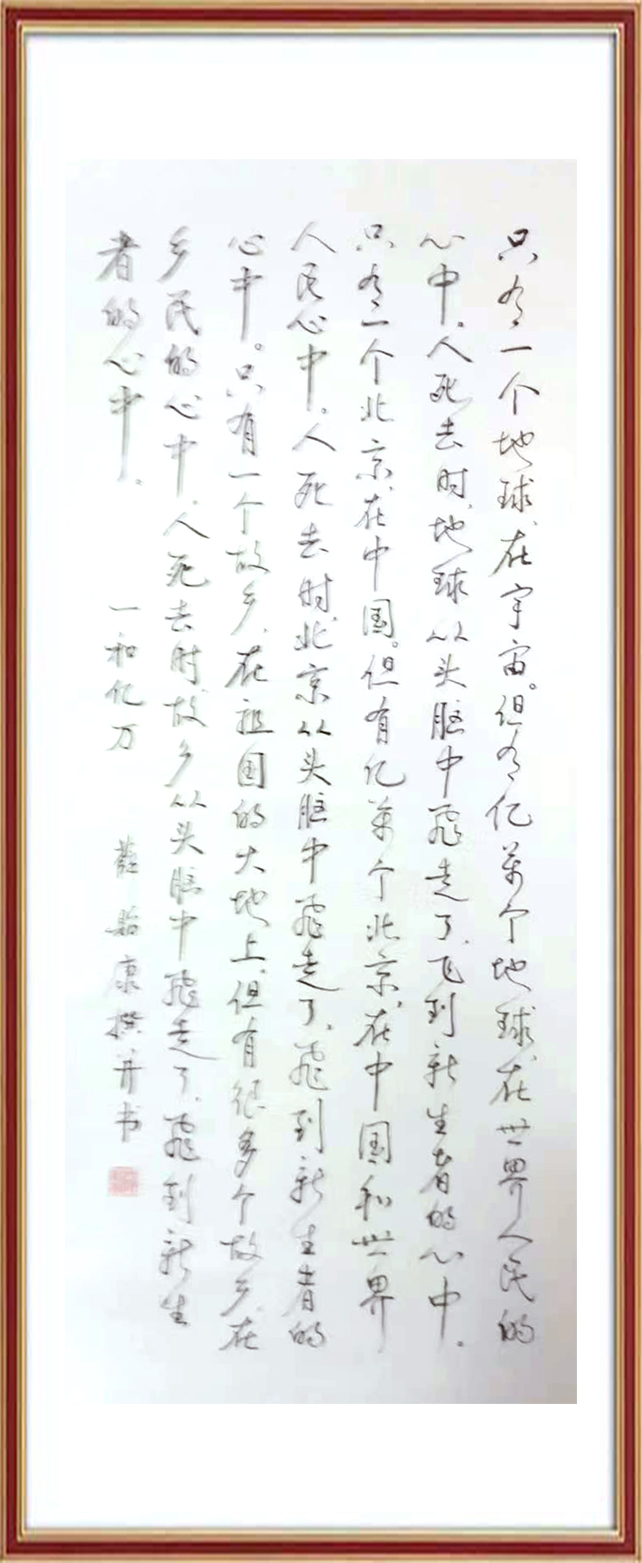 只有一个地球、在宇宙。但有亿万个地球、在世界人民的
心中。人死去时、地球从头脑中飛走了、飞到新生者的心中。
只有一个北京、在中国。但有亿万个北京、在中国和世界
人民心中。人死去时、北京从头脑中飛走了、飛到新生者的
心中。只有一个故乡、在祖国的大地上、但有很多个故乡、在
乡民的心中、人死去时、故乡从头脑中飛走了、飛到新生
者的心中。 一和亿万 康撰并书